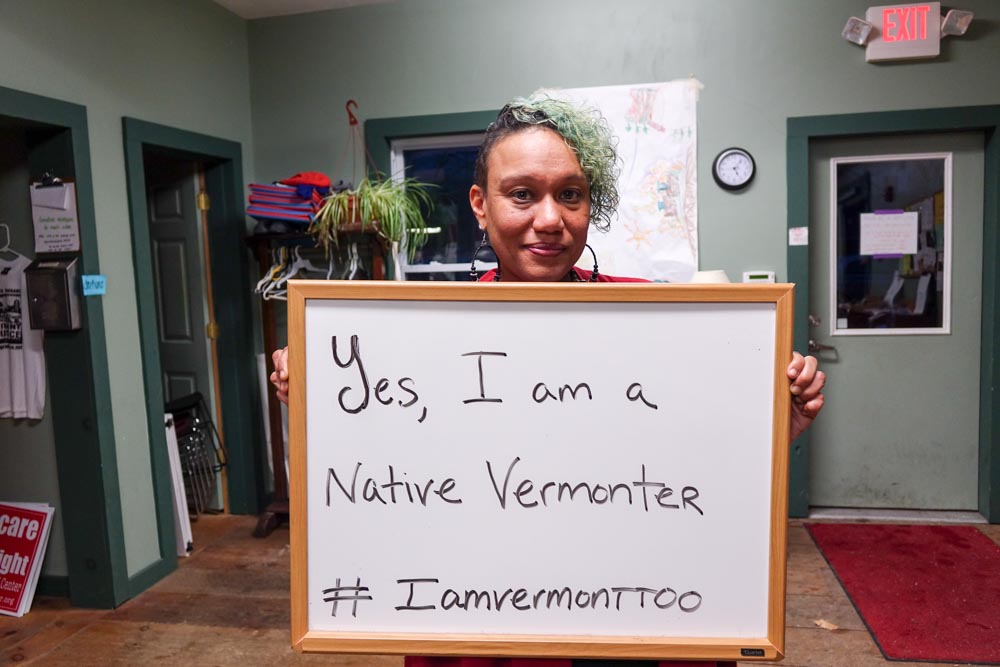 EXIT
Yes, I am a
Native Vermonter
# Iamvermonttoo
care
ight
Center